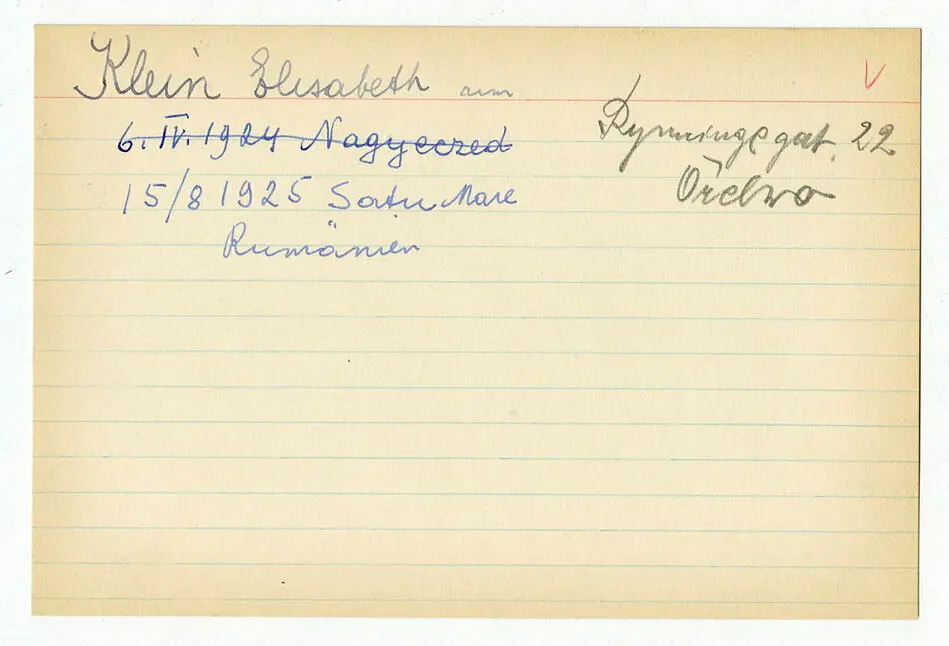 Klein Elisabeth rum
V
6. IV. 1924 Nagyeczed
15/8 1925 Satu Mare
Rumänien
Rynningegat. 22
Örebro